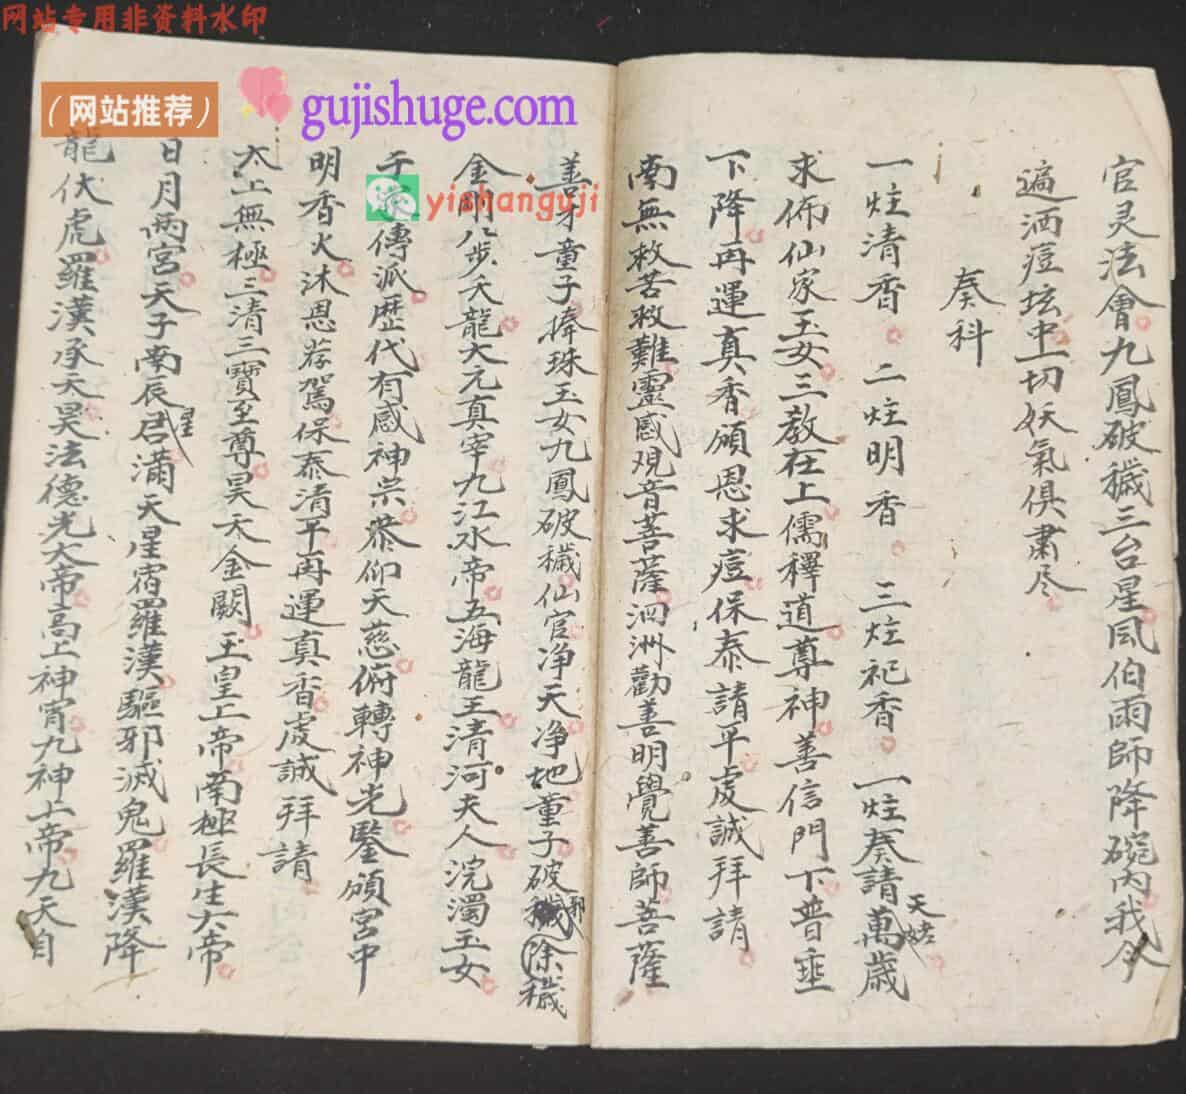 网站专用非资料水印
（网站推荐）
gujishuge.com
yishanguji
官灵法會九鳳破穢三台星風伯雨師降碗内我今
遍洒痘坛中一切妖氣俱肅尽
奏科
一炷清香 二炷明香 三炷祀香 一炷奏請萬歲
天姥
求佈仙家玉女三教在上儒釋道尊神善信門下普垂
下降再運真香頒恩求痘保泰請平虔誠拜請
南無救苦救難靈感观音菩薩泗洲勸善明覺善師菩薩
善才童子捧珠玉女九鳳破穢仙官净天净地童子破穢除穢
邪
金剛八步天龍大元真宰九江水帝五海龍王清河夫人浣濁玉女
千派傳派歷代有感神祟恭仰天慈俯轉神光鑒領宮中
明香火沐恩荐駕保泰清平再運真香虔誠拜請
太上無極三清三寶至尊昊天金闕玉皇上帝南極長生大帝
日月兩宮天子南辰君滿天星宿羅漢驅邪滅鬼羅漢降
星
龍伏虎羅漢承天昊法德光大帝高上神宵九神上帝九天自